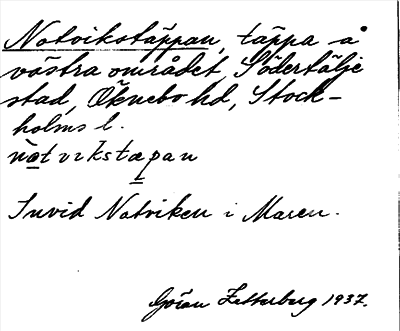 Notvikstäppan, täppa å
västra området, Södertälje
stad, Öknebo hd, Stock-
holms l.
nòtvıkstæpan
Invid Notviken i Maren.
Göran Zetterberg 1937.